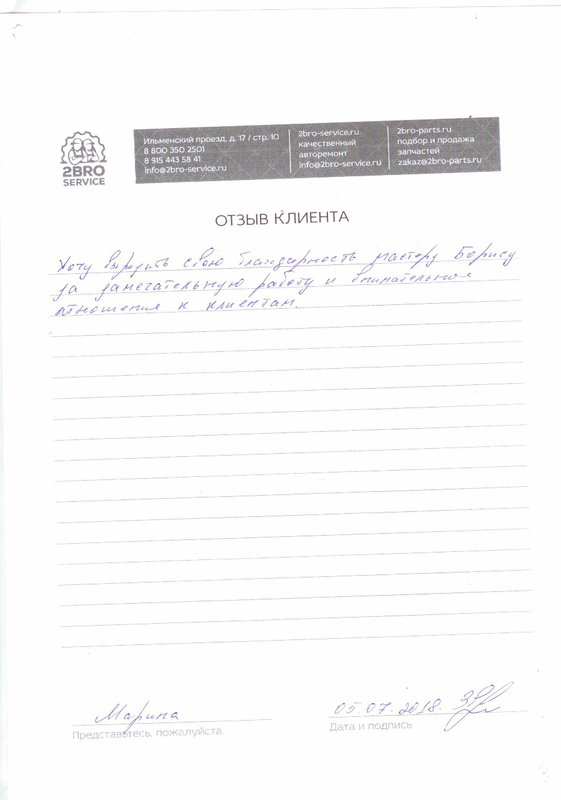 2BRO
SERVICE
Ильменский проезд, д. 17 / стр. 10
8 800 350 2501
8 915 443 58 41
info@2bro-service.ru
2bro-service.ru
качественный
авторемонт
info@2bro-service.ru
2bro-parts.ru
подбор и продажа
запчастей
zakaz@2bro-parts.ru
ОТЗЫВ КЛИЕНТА
Хочу выразить свою благодарность мастеру Борису
за замечательную работу и внимательное
отношения к клиентам.
Марина
Представьтесь, пожалуйста
05.07.2018.
Дата и подпись